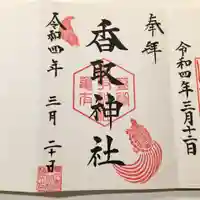 奉拝
令和四年三月十二日
香取神社
令和四年
三月
二十日